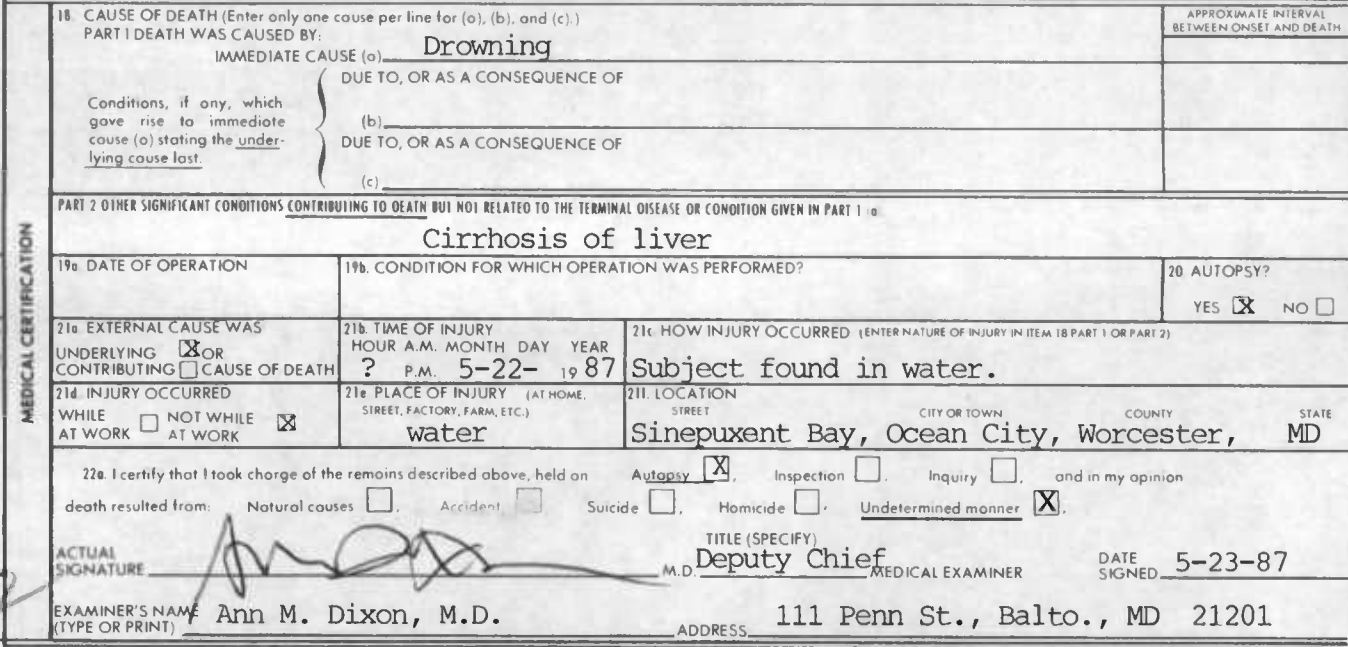 18. CAUSE OF DEATH (Enter only one cause per line for (a), (b), and (c).)
APPROXIMATE INTERVAL
BETWEEN ONSET AND DEATH
PART I DEATH WAS CAUSED BY:
IMMEDIATE CAUSE (a) Drowning
DUE TO, OR AS A CONSEQUENCE OF
Conditions, if any, which
gave rise to immediate
cause (a) stating the under-
lying cause last.
(b)
DUE TO, OR AS A CONSEQUENCE OF
(c)
PART 2 OTHER SIGNIFICANT CONDITIONS CONTRIBUTING TO DEATH BUT NOT RELATED TO THE TERMINAL DISEASE OR CONDITION GIVEN IN PART 1 a
Cirrhosis of liver
MEDICAL CERTIFICATION
19a. DATE OF OPERATION
19b. CONDITION FOR WHICH OPERATION WAS PERFORMED?
20 AUTOPSY?
YES X NO
21a EXTERNAL CAUSE WAS
UNDERLYING X OR
CONTRIBUTING CAUSE OF DEATH
21b. TIME OF INJURY
HOUR A.M. MONTH DAY YEAR
? P.M. 5-22- 19 87
21c HOW INJURY OCCURRED (ENTER NATURE OF INJURY IN ITEM 18 PART 1 OR PART 2)
Subject found in water.
21d INJURY OCCURRED
WHILE AT WORK NOT WHILE AT WORK X
21e PLACE OF INJURY (AT HOME,
STREET, FACTORY, FARM, ETC.)
water
21f. LOCATION
STREET CITY OR TOWN COUNTY STATE
Sinepuxent Bay, Ocean City, Worcester, MD
22a. I certify that I took charge of the remains described above, held on Autopsy X, Inspection , Inquiry , and in my opinion
death resulted from: Natural causes , Accident , Suicide , Homicide , Undetermined manner X,
ACTUAL
SIGNATURE
M.D.
TITLE (SPECIFY)
Deputy Chief MEDICAL EXAMINER
DATE
SIGNED 5-23-87
EXAMINER'S NAME
(TYPE OR PRINT) Ann M. Dixon, M.D.
ADDRESS 111 Penn St., Balto., MD 21201